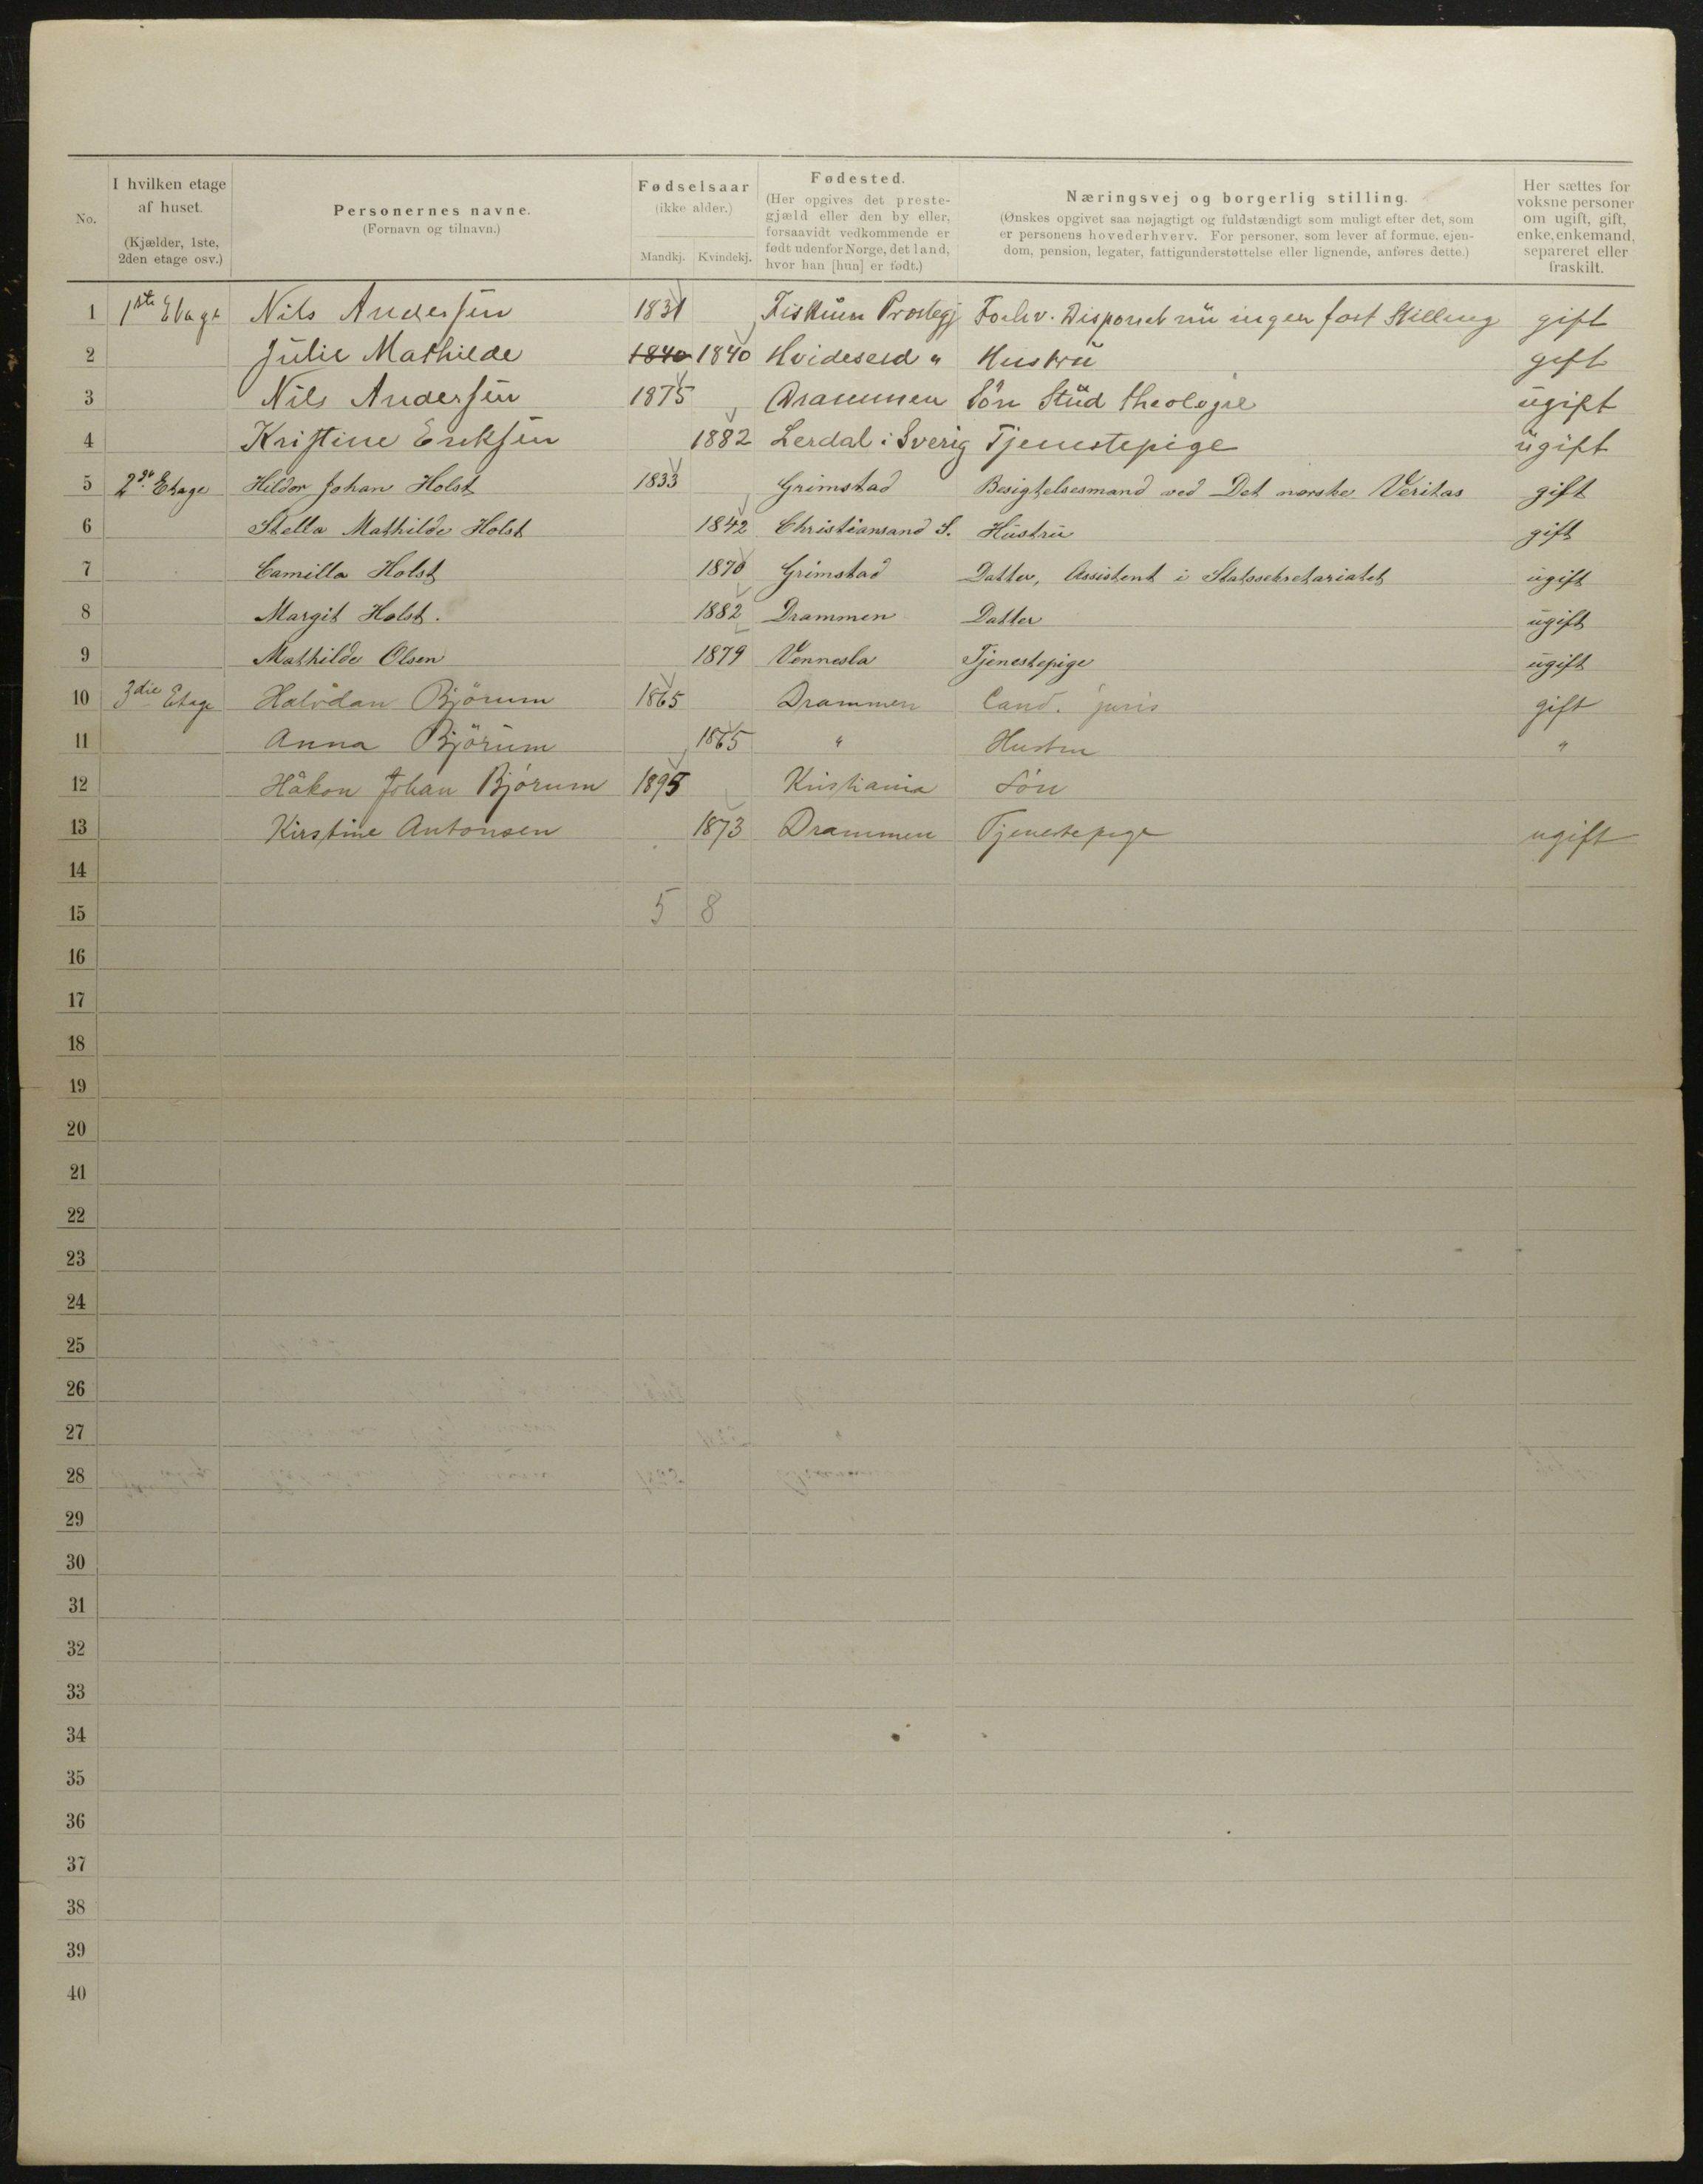 No.
I hvilken etage af huset. (Kjælder, 1ste, 2den etage osv.)
Personernes navne. (Fornavn og tilnavn.)
Fødselsaar (ikke alder.) Mandkj. Kvindekj.
Fødested. (Her opgives det prestegjæld eller den by eller, forsaavidt vedkommende er født udenfor Norge, det land, hvor han [hun] er født.)
Næringsvej og borgerlig stilling. (Ønskes opgivet saa nøjagtigt og fuldstændigt som muligt efter det, som er personens hovederhverv. For personer, som lever af formue, ejendom, pension, legater, fattigunderstøttelse eller lignende, anføres dette.)
Her sættes for voksne personer om ugift, gift, enke, enkemand, separeret eller fraskilt.
1 1ste Etage Nils Andersen 1831 Fiskum Prestegj Forhv. Disponent nu ingen fast Stilling gift
2 Julie Mathilde 1840 1840 Hvideseid " Hustru gift
3 Nils Andersen 1875 Drammen Sön Stud theologie ugift
4 Kristine Eriksen 1882 Lerdal i Sverig Tjenestepige ugift
5 2den Etage Hildor Johan Holst 1833 Grimstad Besigtelsesmand ved Det norske Veritas gift
6 Stella Mathilde Holst 1842 Christiansand S. Hustru gift
7 Camilla Holst 1870 Grimstad Datter, Assistent i Statssekretariatet ugift
8 Margit Holst. 1882 Drammen Datter ugift
9 Mathilde Olsen 1879 Vennesla Tjenestepige ugift
10 3die Etage Halvdan Bjórum 1865 Drammen Cand. juris gift
11 Anna Björum 1865 " Hustru "
12 Håkon Johan Bjórum 1895 Kristiania Són
13 Kirstine Antonsen 1873 Drammen Tjenestepige ugift
14
15 5 8
16
17
18
19
20
21
22
23
24
25
26
27
28
29
30
31
32
33
34
35
36
37
38
39
40